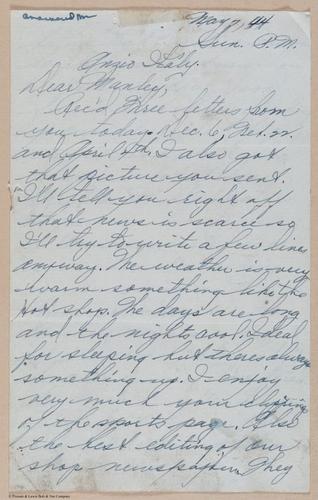 answered
May 7, 44
Sun. P.M.
Anzio Italy.
Dear Manley,
Rec'd three letters from
you today. Dec. 6, Feb. 22.
and April 4th. I also got
that picture you sent.
I'll tell you right off
that news is scarce so
I'll try to write a few lines
anyway. The weather is very
warm something like the
Hot shop. The days are long
and the nights cool. Ideal
for sleeping but theres always
something up. I enjoy
very much your clipping
of the sports page. Also
the best editing of our
shop newspaper. They